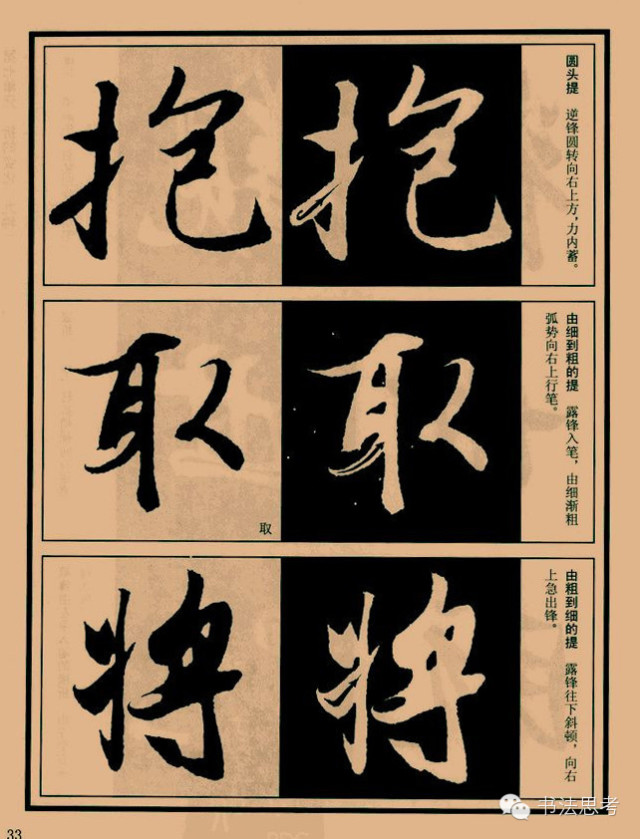 抱 抱
圆头提 逆锋圆转向右上方,力内蓄。
取 取
取
由细到粗的提 露锋入笔,由细渐粗
弧势向右上行笔。
将 将
由粗到细的提 露锋往下斜顿,向右
上急出锋。
书法思考
33